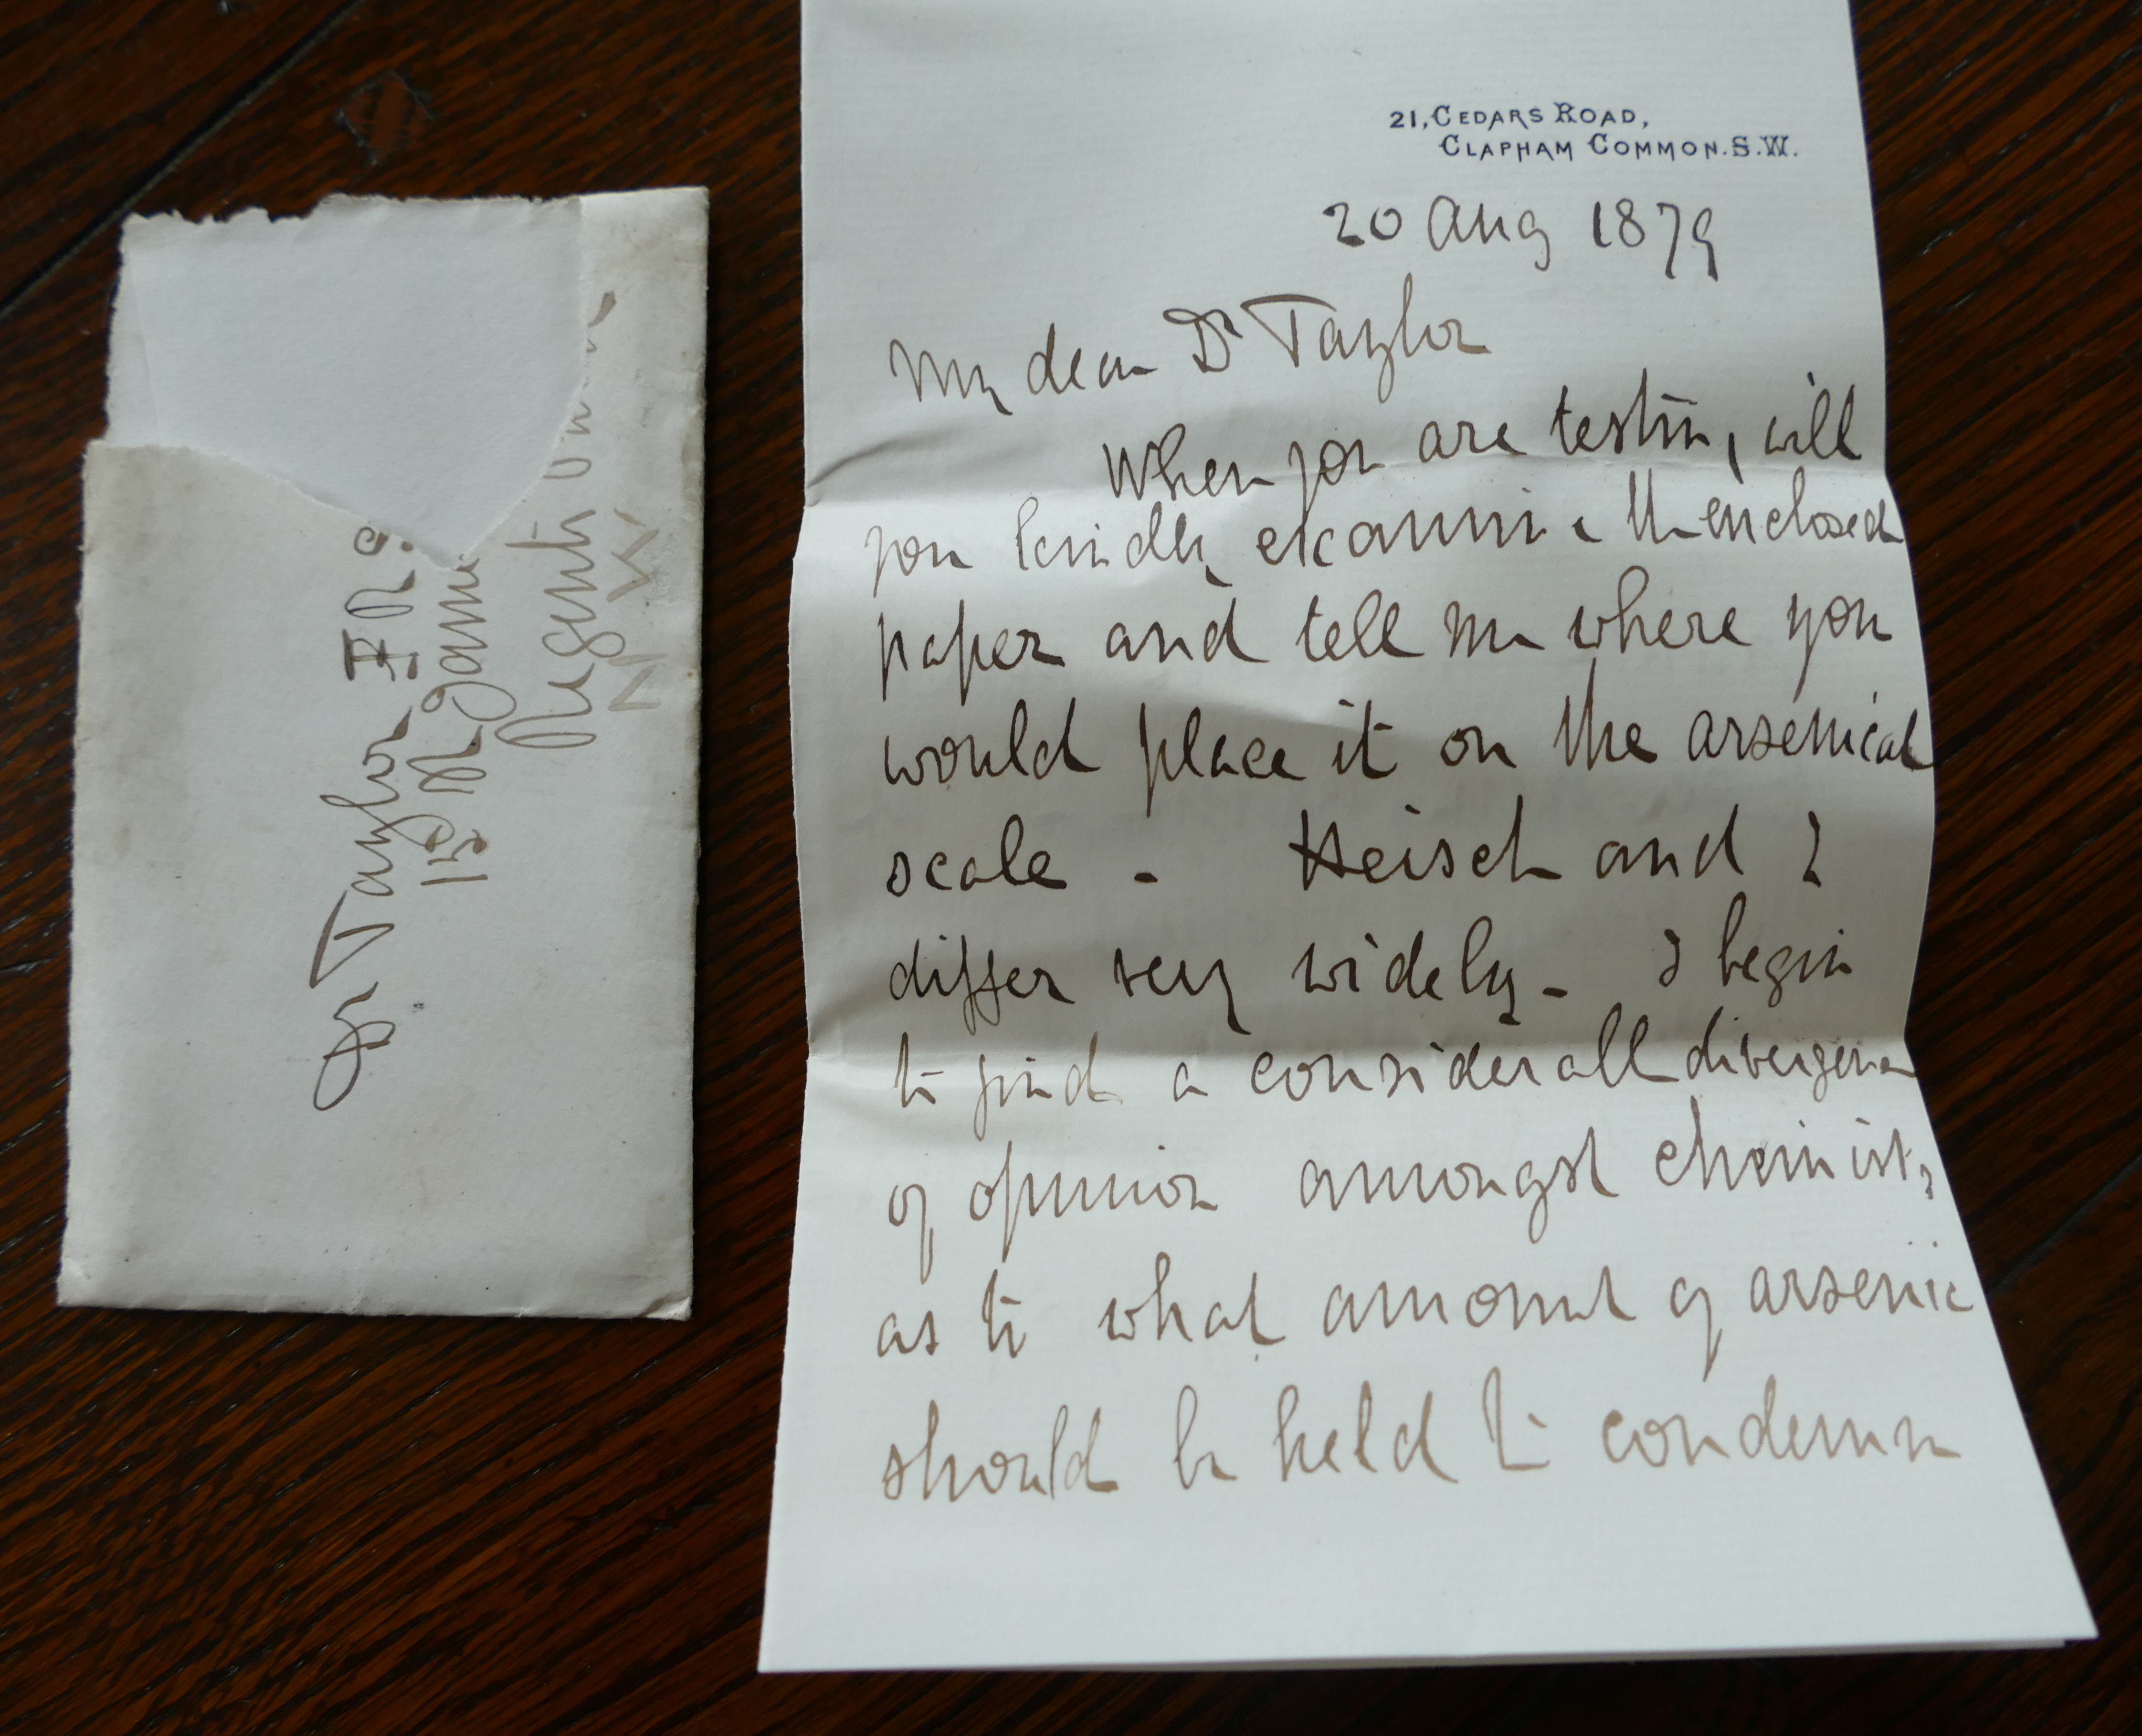 21, CEDARS ROAD,
CLAPHAM COMMON. S.W.
20 Aug 1879
My dear Dr Taylor
When you are testing, will
you kindly examine the enclosed
paper and tell me where you
would place it on the arsenical
scale - Heisch and I
differ very widely - I begin
to find a considerable divergence
of opinion amongst chemists
as to what amount of arsenic
should be held to condemn
Dr Taylor FRS
15 St James
Regents
N W